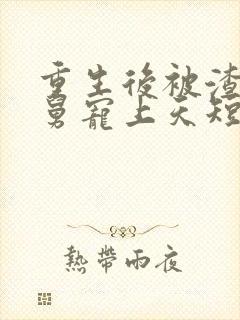 重生後被渣
舅寵上天短
熱帶雨夜